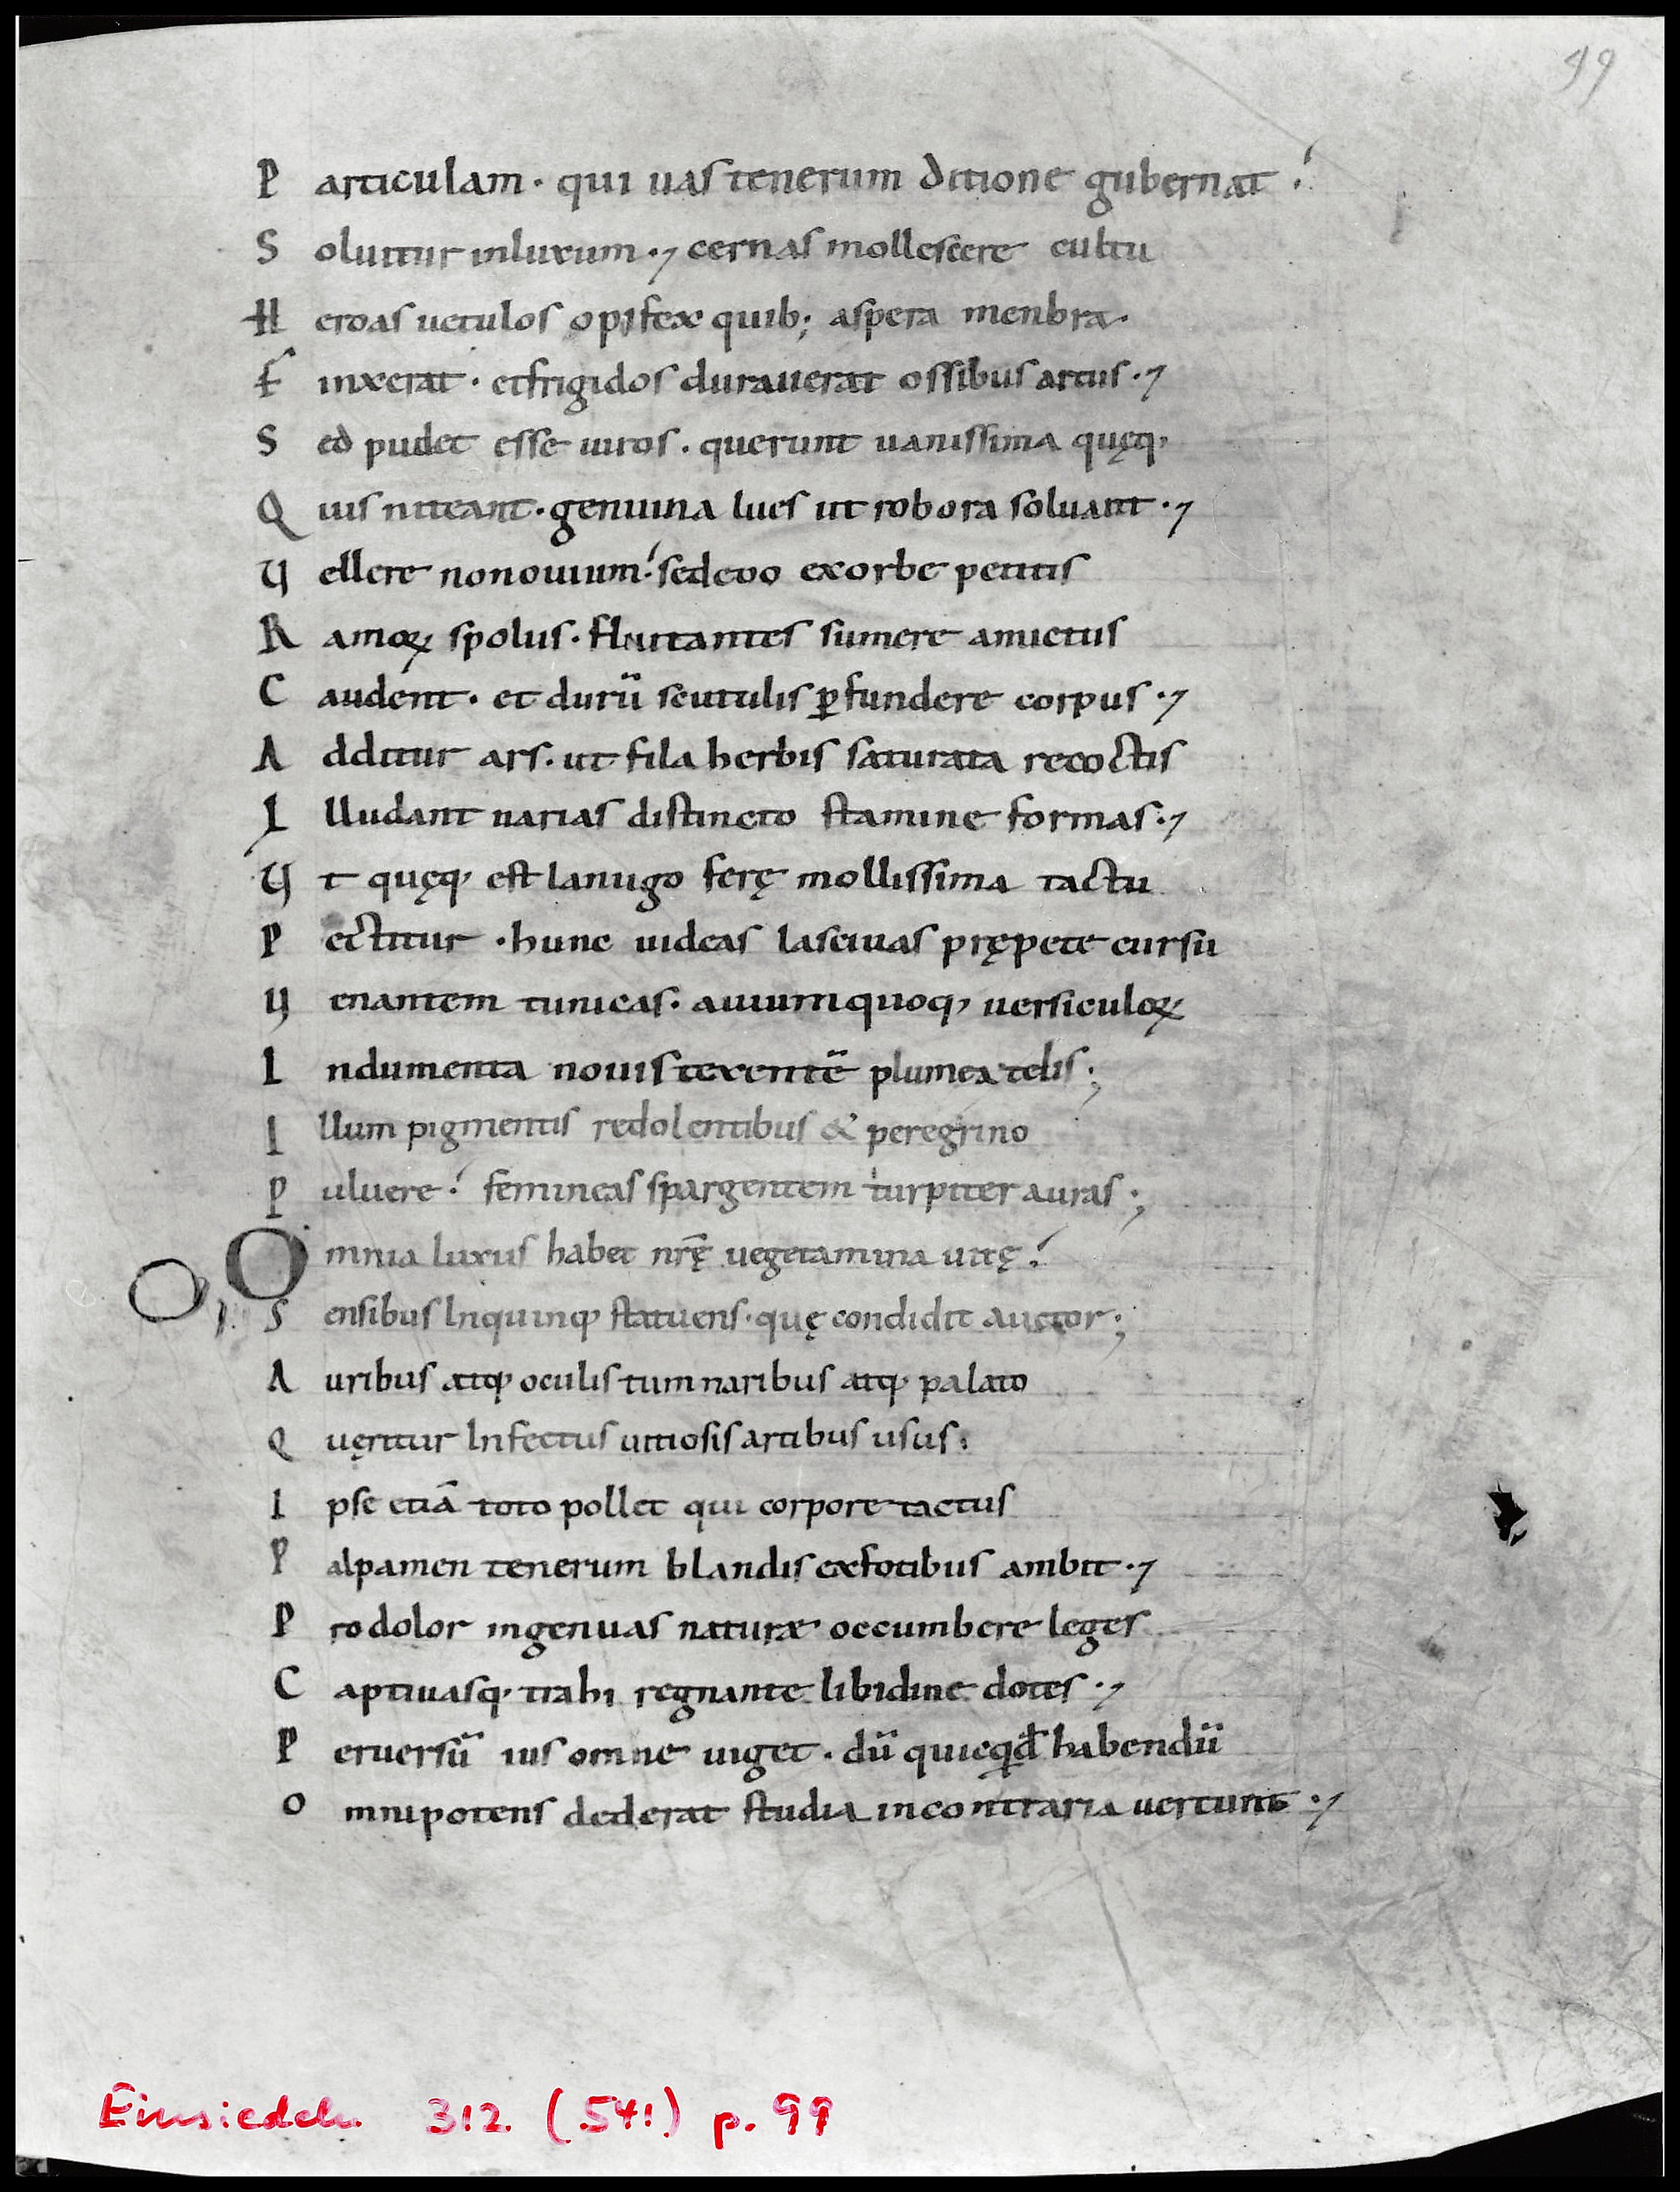 99
P articulam · qui uas tenerum ditione gubernat ·
S oluitur inluxum ·, cernas mollescere cultu
H eroas uetulos opifex quib; aspera menbra ·
F inxerat · etfrigidos durauerat ossibus artus ·,
S ed pudet esse uiros · querunt uanissima quęq,
Q uis niteant · genuina lues ut robora soluant ·,
U ellere nonouium · sedeoo exorbe petitis
R amoꝝ spolus · fluitantes sumere amictus
C audent · et durū scutulis ꝑfundere corpus ·,
A dditur ars · ut fila herbis saturata recoctis
I lludant uarias distincto stamine formas ·,
U t quęq, est lanugo ferę mollissima tactu
P ectitur · hunc uideas lasciuas prępete cursu
U enantem tunicas · auium quoq, uersiculoꝝ
I ndumenta nouis texentē plumea telis ;
I llum pigmentis redolentibus & peregrino
P uluere · femineas spargentem turpiter auras ;
O mnia luxus habet nr̄ę uegetamina uitę ·
O, S ensibus Inquinq, statuens · quę condidit auctor ;
A uribus atq, oculis tum naribus atq, palato
Q uęritur Infectus uitiosis artibus usus ;
I pse etiā toto pollet qui corpore tactus
P alpamen tenerum blandis exfotibus ambit ·,
P ro dolor ingenuas naturæ occumbere leges
C aptiuasq, trahi regnante libidine dotes ·,
P eruersū ius omne uiget · dū quicq̄d habendū
O mnipotens dederat studia incontraria uertunt ·,
Einsiedeln 312. (541) p. 99